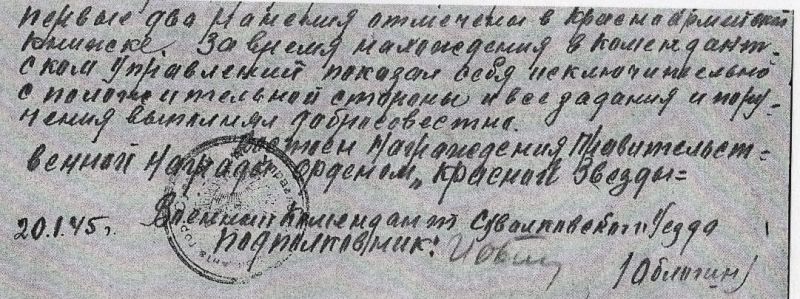 первые два ранения отмечены в красноармейской
книжске. За время нахождения в комендант-
ском управлений показал себя исключительно
с положительной стороны и все задания и пору-
чения выполнял добросовестно.
Достоен награждения Правительст=
венной награды орденом „Красной Звезды=
20.1.45г. Военный комендант Сувалковского уезда
подполковник: